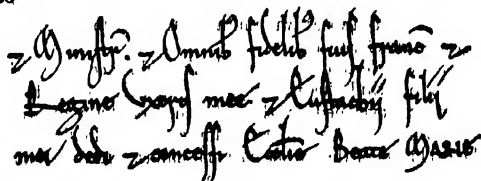 ⁊ Ministr̄. ⁊ Omnib' fidelib' suis francis ⁊
Regine Uxoris mee ⁊ Eustachii filii
mei dedi ⁊ concessi Eccl̄ie Beate Marie